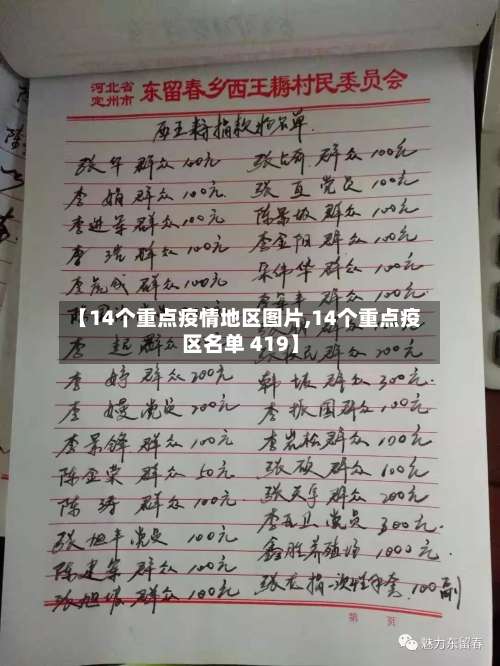 河北省
定州市 东留春乡西王耨村民委员会
西王耨捐款 名单
张华 群众 100元 张占奇 群众 100元
李娟 群众 100元 张直 党员 100元
李进荣 群众 100元 陈景敏 群众 100元
李浩 群众 100元 李金阳 群众 100元
李 成 群众 100元 宋伟华 群众 100元
【14个重点疫情地区图片,14个重点疫
区名单 419】
李起 群众 民 群众 200元
李婷 群众 200元 韩坡 群众 300元.
李嫚 党员 200元 李振国 群众 100元
李景锋 群众 100元 李岩松 群众 100元
陈金荣 群众 50元 张硕 群众 100元
陈涛 群众 100元. 张天宇 群众 200元
张旭丰 党员 100元 党员 300元.
陈建荣 群众 100元 鑫胜养殖场 1000元.
张旭坡 群众 100元 张龙捐一次性手套 100副
第 页
魅力东留春